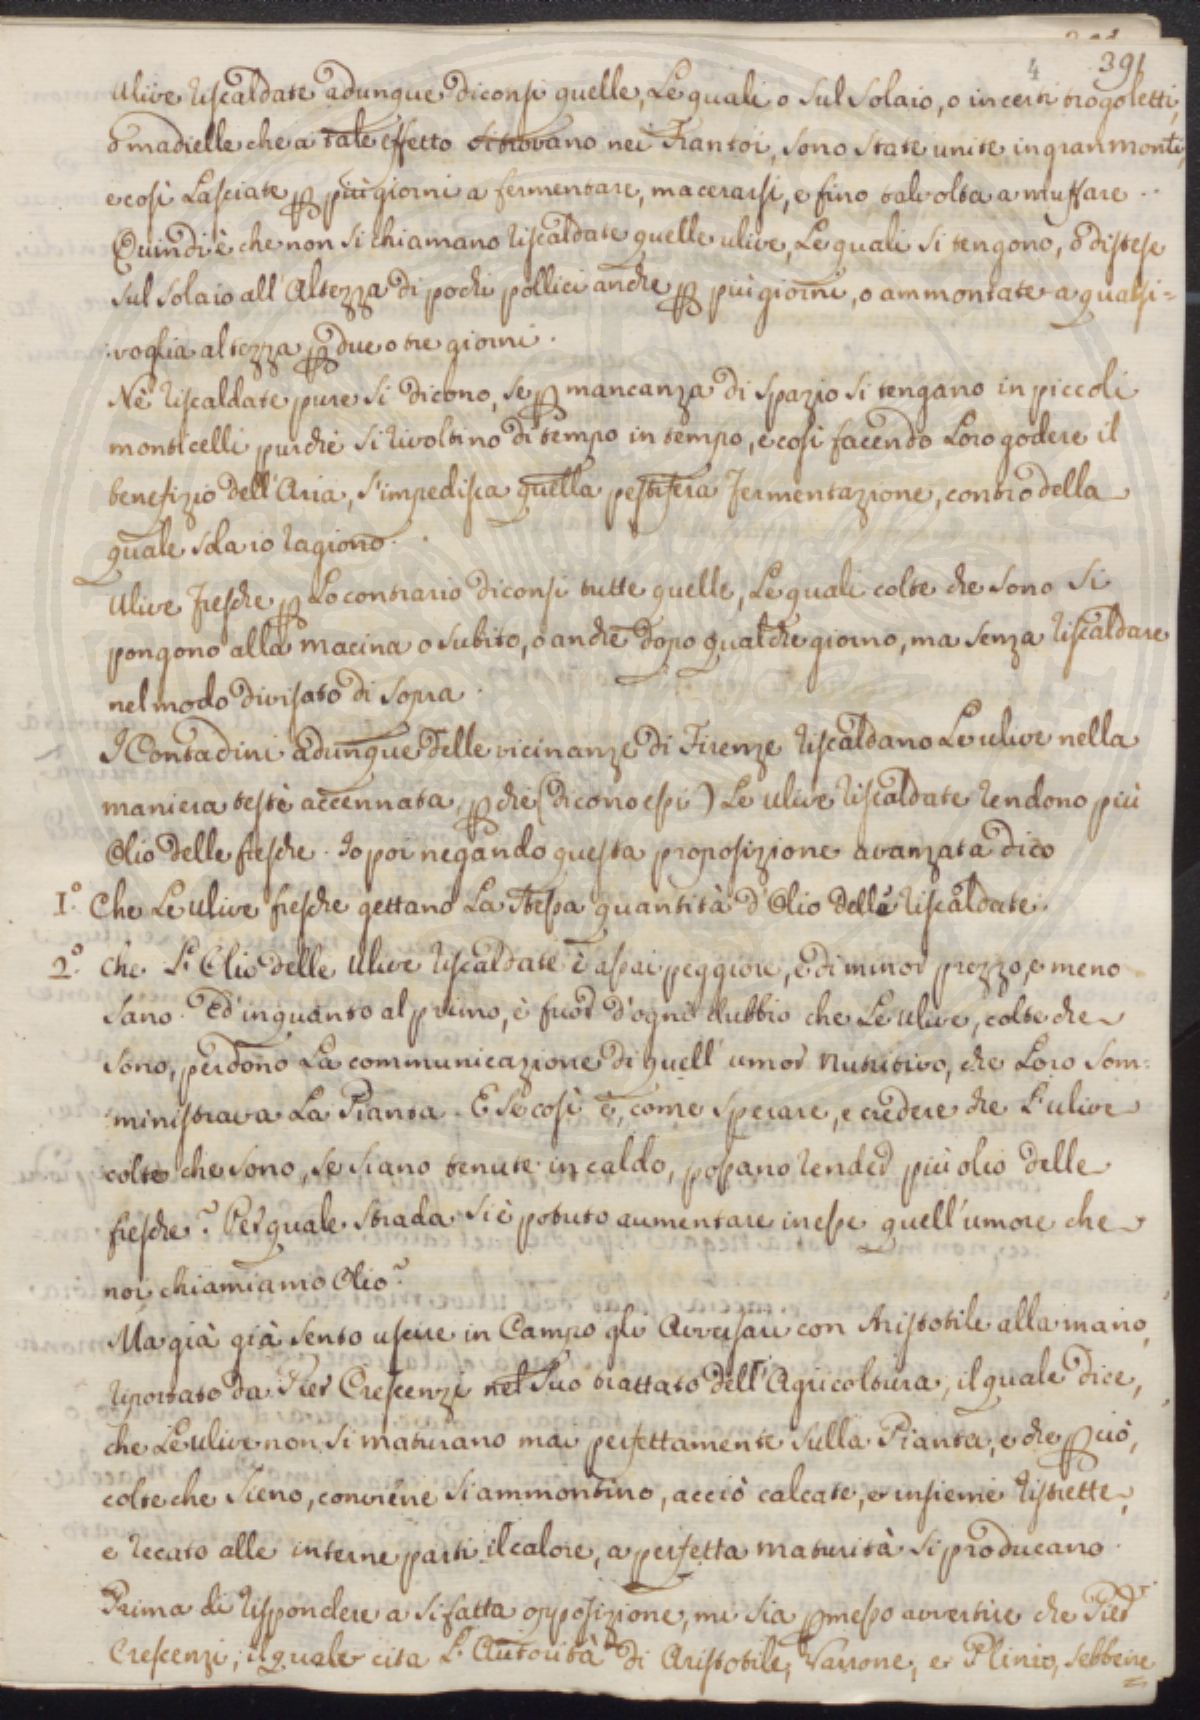 4 391
Ulive riscaldate adunque diconsi quelle, Le quali o sul solaio, o in certi trogoletti,
o madielle che a tale effetto si trovano nei Frantoi, sono state unite in gran monti,
e così Lasciate p più giorni a fermentare, macerarsi, e fino talvolta a muffare ..
Quindi è che non si chiamano riscaldate quelle ulive, Le quali si tengono, o distese
sul solaio all'Altezza di pochi pollici anche p più giorni, o ammontate a qualsi=
voglia altezza p due o tre giorni.
Nè riscaldate pure si dicono, se p mancanza di spazio si tengano in piccoli
monticelli purchè si rivoltino di tempo in tempo, e così facendo Loro godere il
benefizio dell'Aria, s'impedisca quella pestifera Fermentazione, contro della
quale solo io ragiono.
Ulive Fresche p Lo contrario diconsi tutte quelle, Le quali colte che sono si
pongono alla macina o subito, o anche dopo qualche giorno, ma senza riscaldare
nel modo divisato di sopra.
I Contadini adunque delle vicinanze di Firenze riscaldano Le ulive nella
maniera testè accennata, p chè (dicono essi) Le ulive riscaldate rendono più
Olio delle fresche. Io poi negando questa proposizione avanzata dico
1.° Che Le ulive fresche gettano La stessa quantità d'Olio delle riscaldate.
2.° Che L'Olio delle ulive riscaldate è assai peggiore, e di minor prezzo, e meno
sano. Ed in quanto al primo, è fuor d'ogni dubbio che Le ulive, colte che
sono, perdono La communicazione di quell'umor nutritivo, che Loro som=
ministrava La Pianta. E se così è, come sperare, e credere che L'ulive
colte che sono, se siano tenute in caldo, possano render più olio delle
fresche? Per quale strada si è potuto aumentare in esse quell'umore che
noi chiamiamo Olio?
Ma già già sento uscire in Campo gli Avversari con Aristotile alla mano,
riportato da Pier Crescenzi nel suo trattato dell'Agricoltura, il quale dice,
che Le ulive non si maturano mai perfettamente sulla Pianta, e che p ciò,
colte che sieno, conviene si ammontino, acciò calcate, e insieme ristrette,
e recato alle interne parti il calore, a perfetta maturità si producano.
Prima di rispondere a sì fatta opposizione, mi sia pmesso avvertire che Pier
Crescenzi, il quale cita L'Autorità di Aristotile, Varrone, e Plinio, sebbene